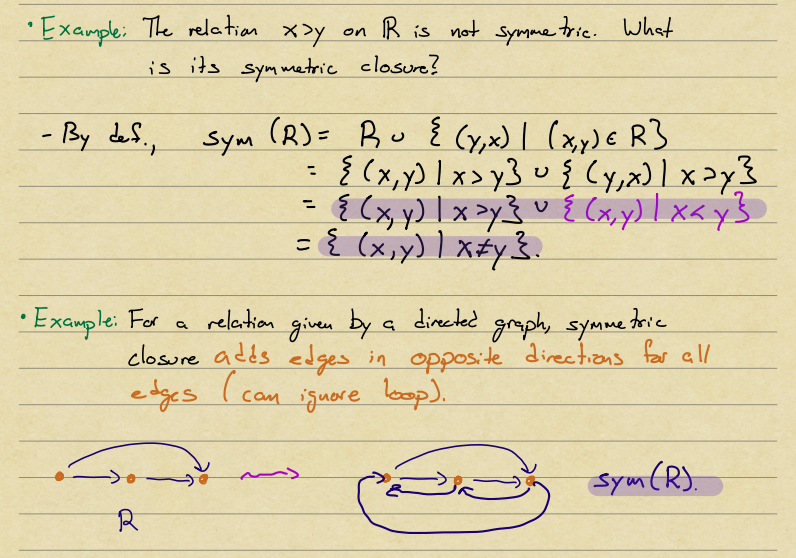 • Example: The relation x>y on ℝ is not symmetric. What
is its symmetric closure?
- By def., sym (R) = R ∪ { (y,x) | (x,y) ∈ R }
= { (x,y) | x>y } ∪ { (y,x) | x>y }
= { (x,y) | x>y } ∪ { (x,y) | x<y }
= { (x,y) | x≠y }.
• Example: For a relation given by a directed graph, symmetric
closure adds edges in opposite directions for all
edges (can ignore loop).
R
sym(R).